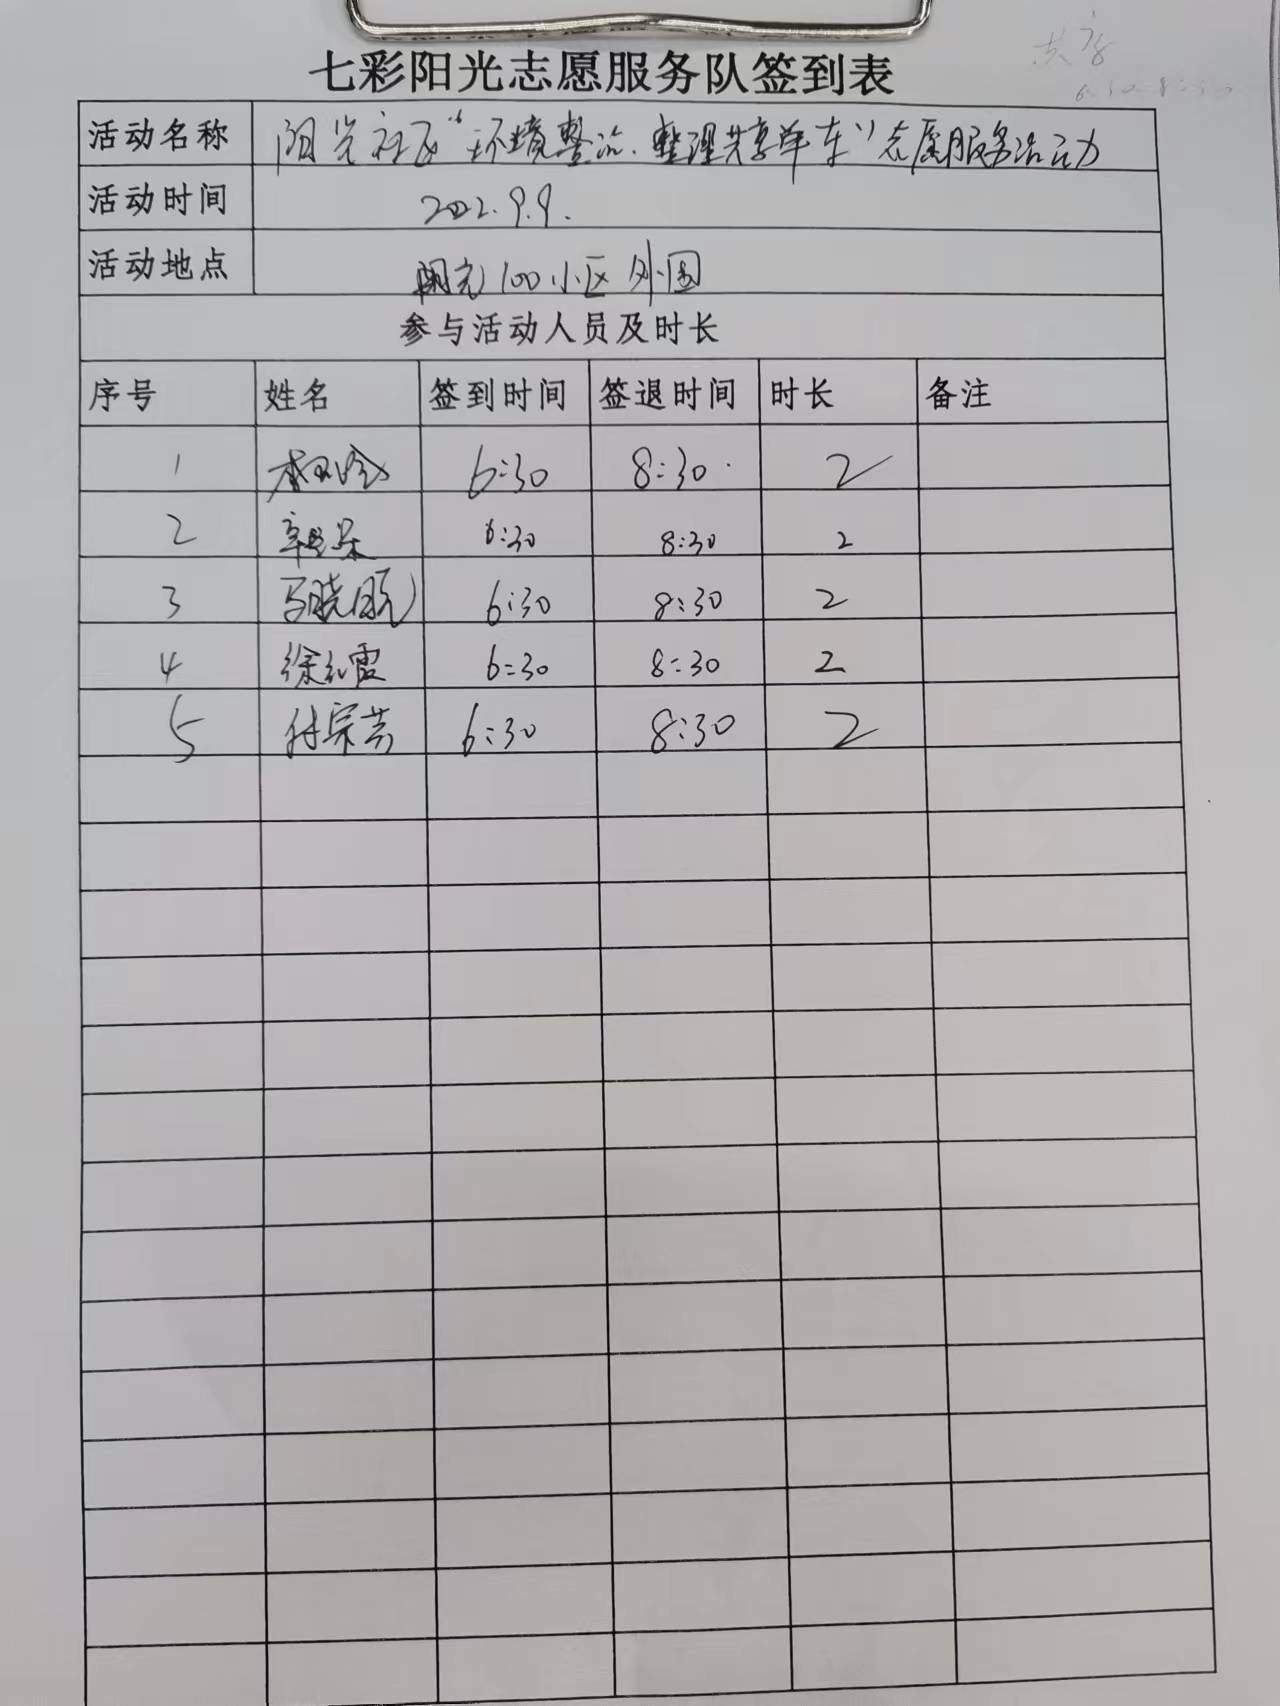 七彩阳光志愿服务队签到表
活动名称 阳光社区“环境整治、整理共享单车”志愿服务活动
活动时间 2022.9.9.
活动地点 阳光100小区外围
参与活动人员及时长
序号 姓名 签到时间 签退时间 时长 备注
1 6:30 8:30 2
2 6:30 8:30 2
3 马晓 6:30 8:30 2
4 徐红霞 6:30 8:30 2
5 付宗芸 6:30 8:30 2